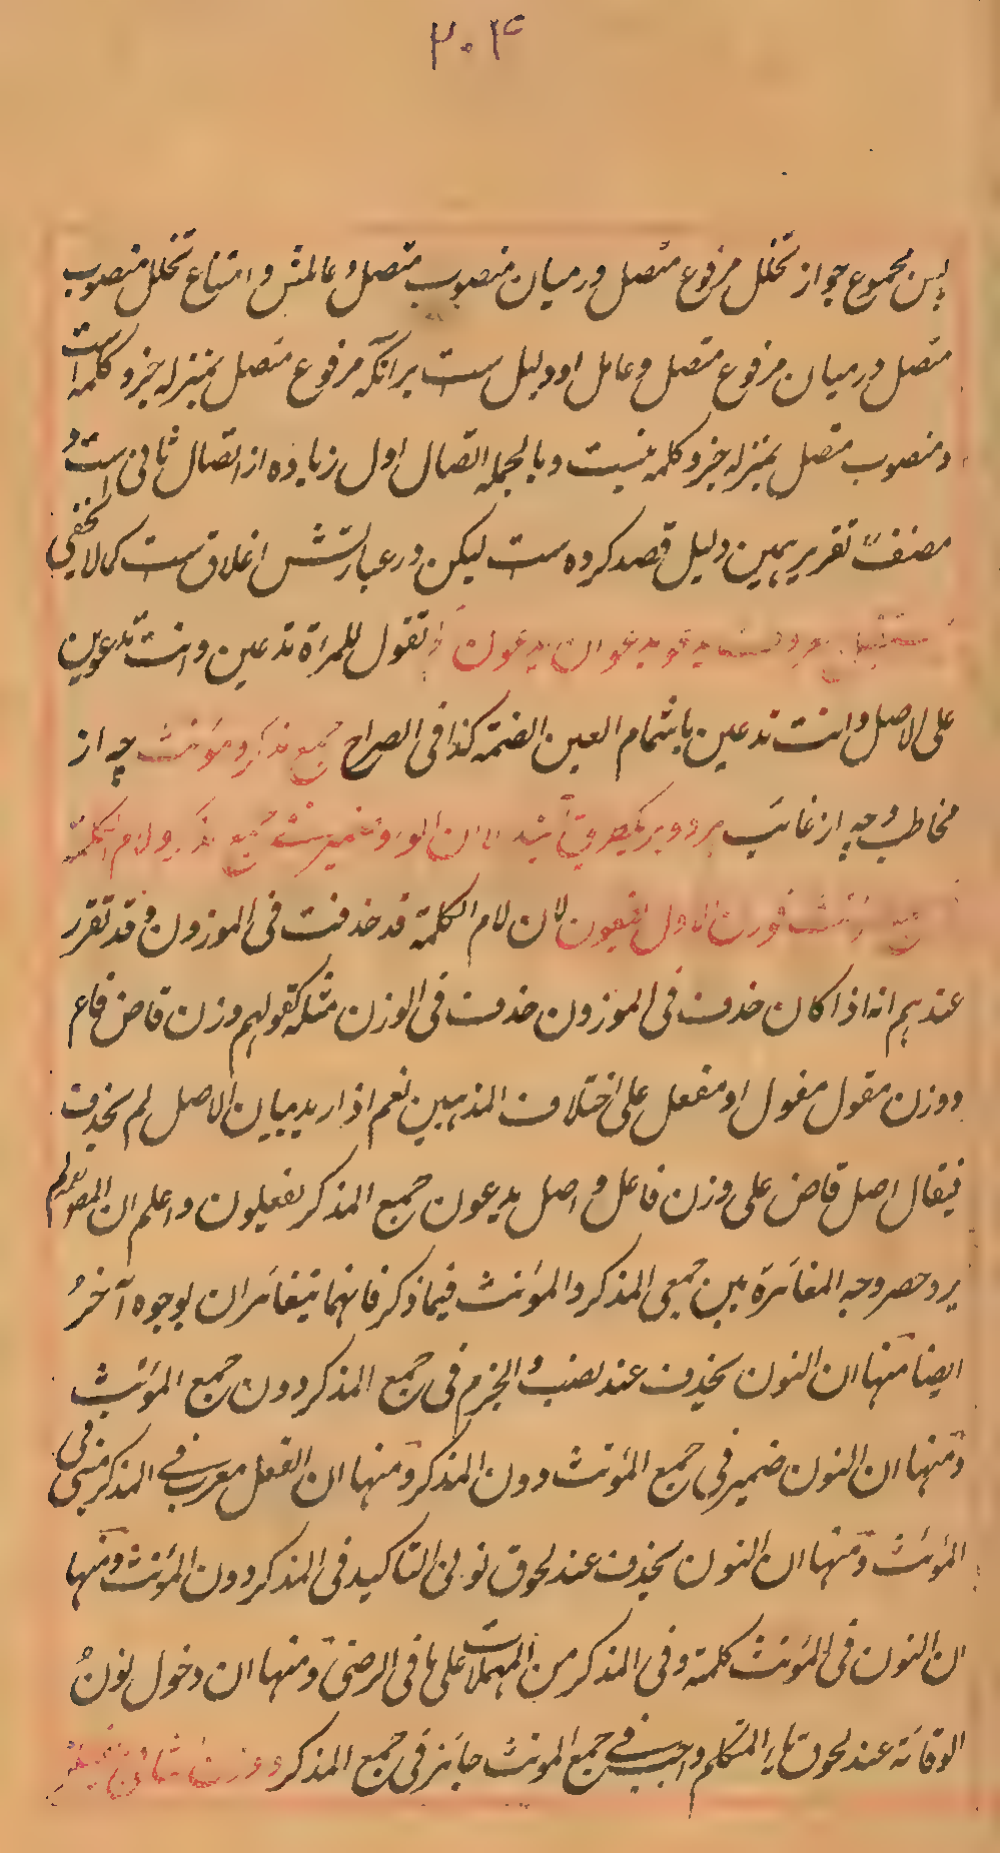 ۲۰۴
پس مجموع جواز تخلل مرفوع متصل درمیان منصوب متصل و عاملش و امتناع تخلل منصوب
متصل درمیان مرفوع متصل و عامل او دلیل ست برانکه مرفوع متصل بمنزله جزو کلمه است
و منصوب متصل بمنزله جزو کلمه نیست و بالجمله اتصال اول زیاده از اتصال ثانی است و
مصنف تقریر همین دلیل قصد کرده ست لیکن در عبارتش اغلاق ست کما لا یخفی
یدعو یدعوان یدعون و تقول للمرأة تدعین و انت تدعوین
علی الاصل و انت تدعین باشمام العین الضمة کذا فی الصراح جمع مذکر و مؤنث چه از
مخاطب و چه از غائب هر دو بر یکصورت آیند الا ان الواو ضمیر جمع مذکر و لام الکلمة
فوزن الاول یفعون لان لام الکلمة قد حذفت فی الموزون و قد تقرر
عندهم انه اذا کان حذف فی الموزون حذف فی الوزن مثله کقولهم وزن قاض فاع
و وزن مقول مفول او مفعل علی اختلاف المذهبین نعم اذا ارید بیان الاصل لم یحذف
فیقال اصل قاض علی وزن فاعل و اصل یدعون جمع المذکر یفعلون و اعلم ان المصنف لم
یرد حصر وجه المغائرة بین جمعی المذکر و المؤنث فیما ذکر فانهما یتغائران بوجوه آخر
ایضا منها ان النون یحذف عند نصب و الجزم فی جمع المذکر دون جمع المؤنث
و منها ان النون ضمیر فی جمع المؤنث دون المذکر و منها ان الفعل معرب فی المذکر مبنی فی
المؤنث و منها ان النون یحذف عند لحوق نونی التاکید فی المذکر دون المؤنث و منها
ان النون فی المؤنث کلمة و فی المذکر من المهملات علی ما فی الرضی و منها ان دخول نون
الوقایة عند لحوق یاء المتکلم واجب فی جمع المونث جائز فی جمع المذکر و وزن